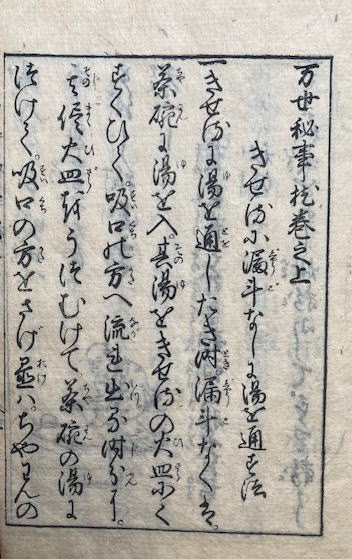 万世秘事枕巻之上
きせるに漏斗なしに湯を通す法
一きせるに湯を通したき時。漏斗なくば。
茶碗に湯を入。其湯をきせるの火皿にて
すくひて。吸口の方へ流れ出る時分に。
其侭火皿をうつむけて。茶碗の湯に
つけて。吸口の方をさげ置ば。ちやわんの